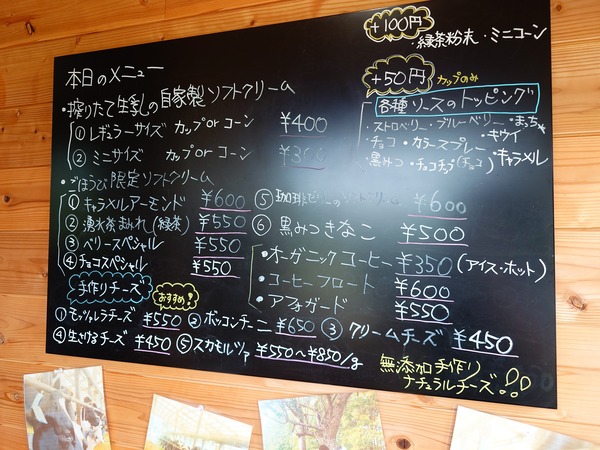 本日のメニュー
・搾りたて生乳の自家製ソフトクリーム
① レギュラーサイズ カップorコーン ¥400
② ミニサイズ カップorコーン ¥300
・ごほうび限定ソフトクリーム
① キャラメルアーモンド ¥600
② 湧水茶まみれ(緑茶) ¥550
③ ベリースペシャル ¥550
④ チョコスペシャル ¥550
⑤ ソフトクリーム ¥600
⑥ 黒みつきなこ ¥500
・オーガニックコーヒー ¥350 (アイス・ホット)
・コーヒーフロート ¥600
・アフォガード ¥550
+100円
・緑茶粉末・ミニコーン
+50円 カップのみ
各種ソースのトッピング
・ストロベリー・ブルーベリー・まっ茶
・チョコ・カラースプレー・キウイ
・黒みつ・チョコチップ(チョコ)・キャラメル
手作りチーズ おすすめ!
① モッツァレラチーズ ¥550 ② ボッコンチーニ ¥650 ③ クリームチーズ ¥450
④ 生さけるチーズ ¥450 ⑤ スカモルツァ ¥550〜¥850/g
無添加手作り
ナチュラルチーズ!!